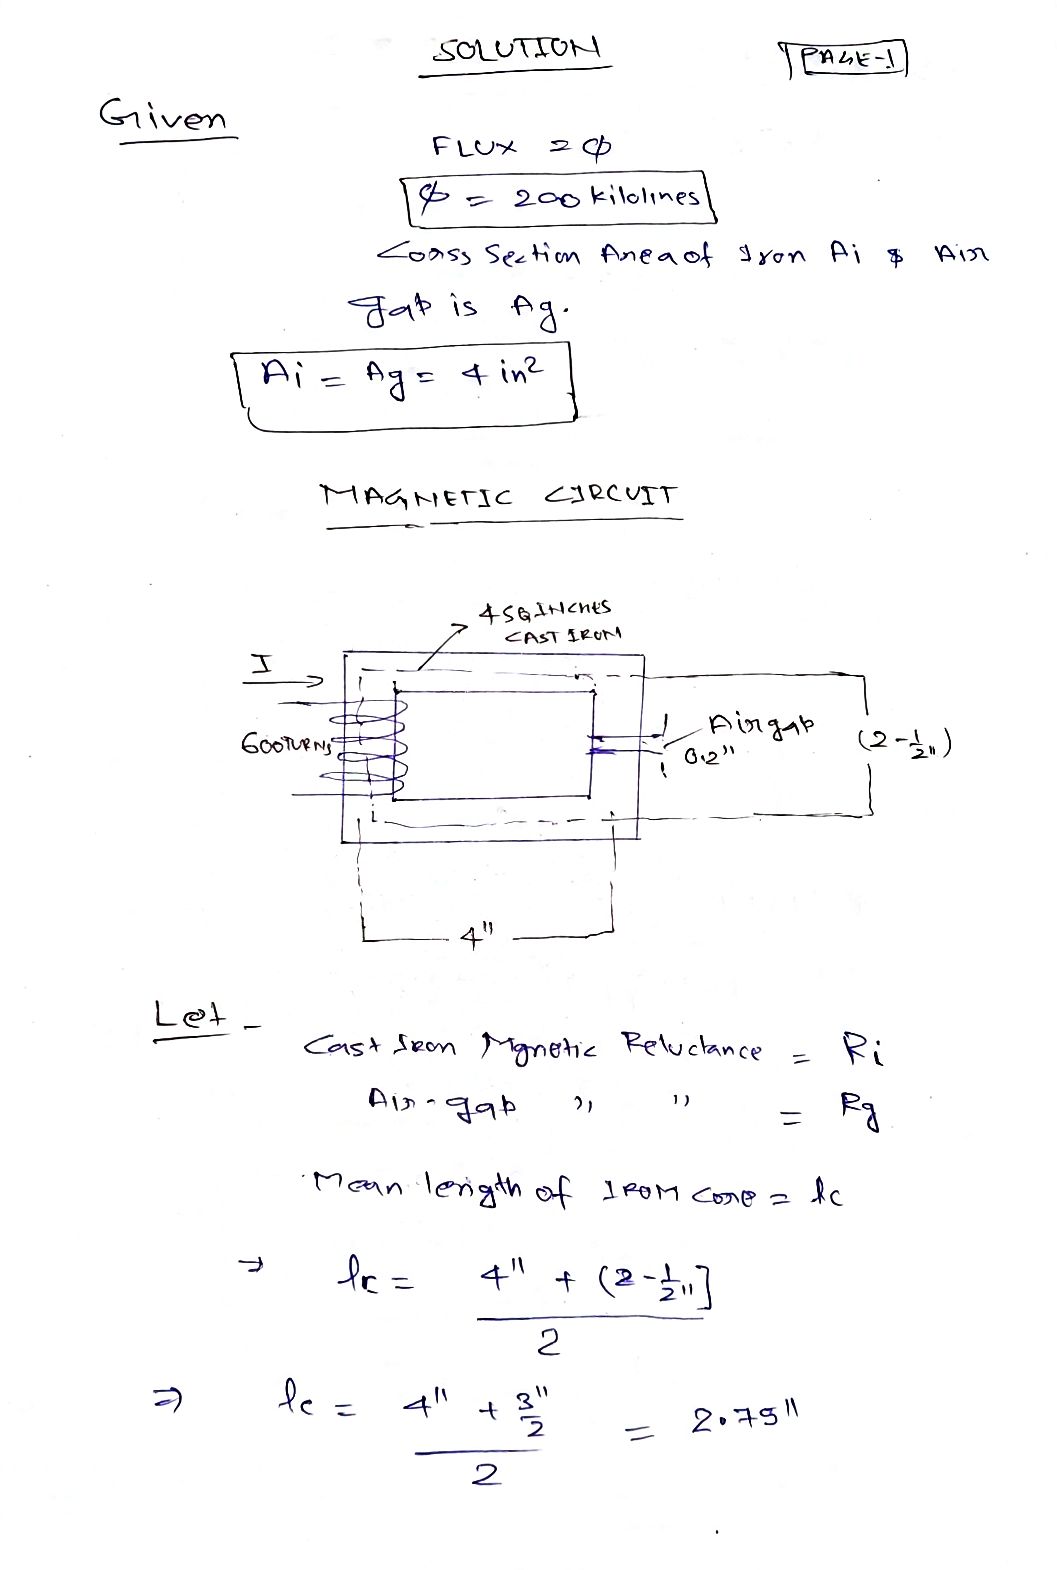 SOLUTION
PAGE-1
Given
FLUX = ϕ
ϕ = 200 kilolines
Coross Section Area of Iron Ai & Air
gap is Ag.
Ai = Ag = 4 in²
MAGNETIC CIRCUIT
4 SQ INCHES
CAST IRON
I
600TURNS
Airgap
0.2"
(2-1/2")
4"
Let -
Cast Iron Mgnetic Reluctance = Ri
Air-gap " " = Rg
Mean length of IRON core = lc
⇒ lc = 4" + (2-1/2"] / 2
⇒ lc = 4" + 3"/2 / 2 = 2.75"